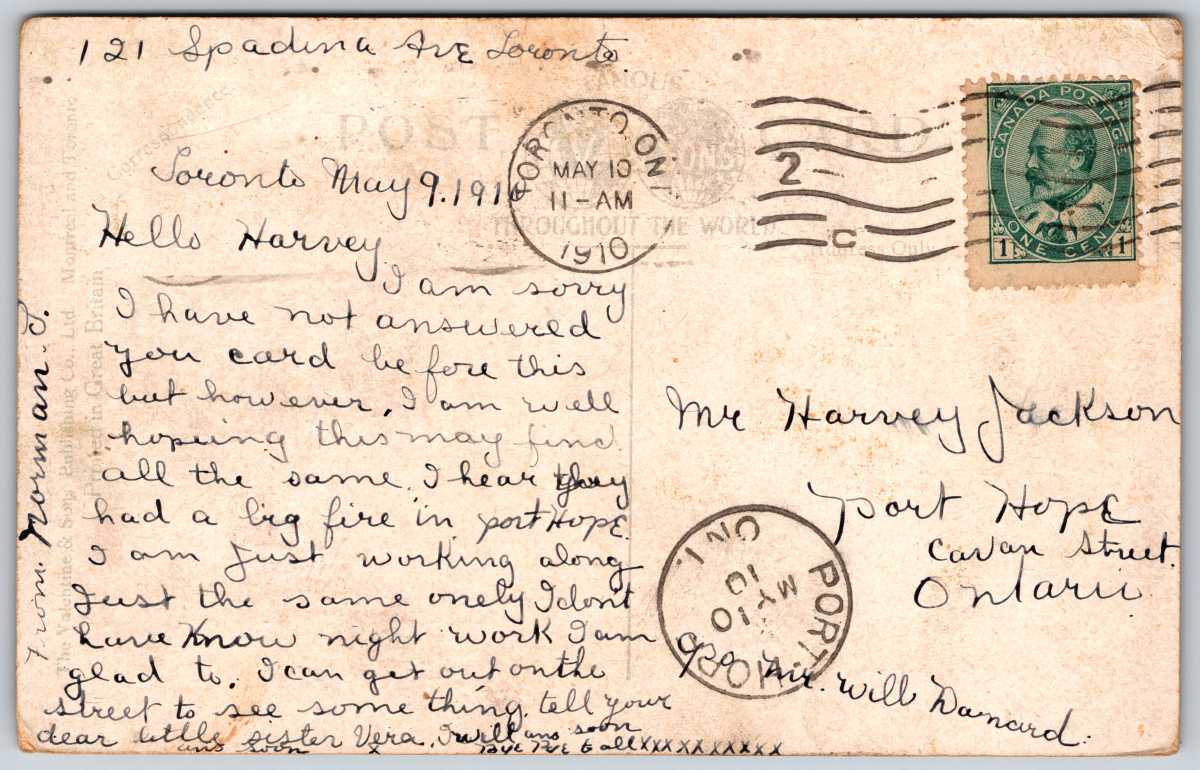 121 Spadina Ave Toronto
Toronto May 9. 1910
Hello Harvey
I am sorry
I have not answered
you card before this
but however, I am well
hopeing this may find
all the same. I hear they
had a big fire in port Hope.
I am just working along
Just the same onely I don't
have Know night work I am
glad to. I can get out on the
street to see some thing. tell your
dear little sister Vera, I will ans soon
ans soon x Bye Bye to all xxxxxxxxxxx
From Norman. J.
The Valentine & Sons Publishing Co., Ltd. Montreal and Toronto
Printed in Great Britian
Correspondence
POST CARD
FAMOUS
THROUGHOUT THE WORLD.
Address Only
TORONTO, ONT
MAY 10
11-AM
1910
2
C
CANADA POSTAGE
1 ONE CENT 1
Mr Harvey Jackson
Port Hope
Cavan Street.
Ontario
c/o Mr. Will Damard.
PORT HOPE
ONT.
MY 10
10